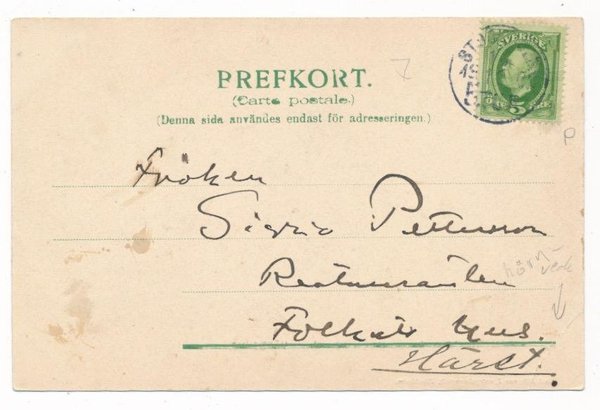 PREFKORT.
(Carte postale.)
(Denna sida användes endast för adresseringen.)
SVERIGE
5
Fröken
Sigrid Pettersson
Restauranten
Folkets Hus.
Härst.
P